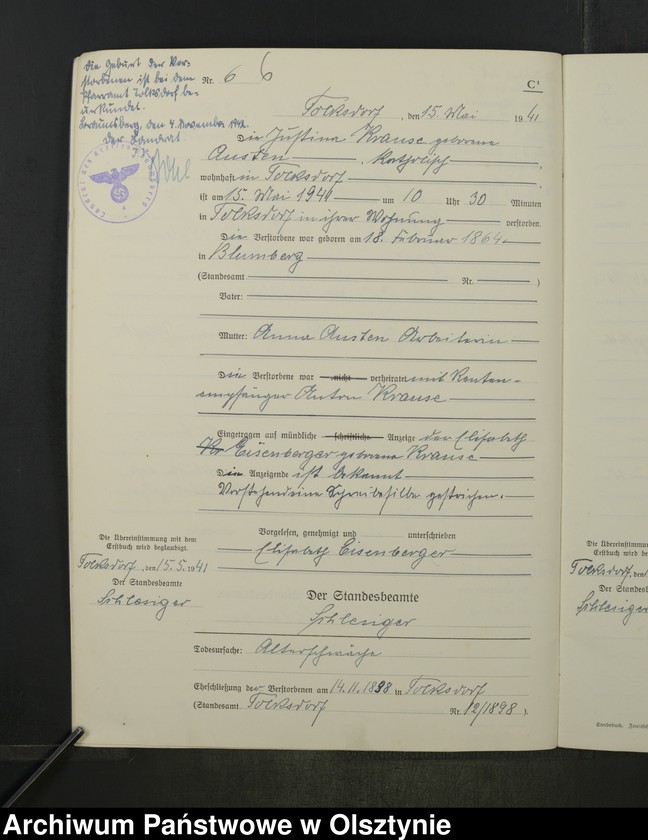 Die Geburt der Ver=
storbenen ist bei dem
Pfarramt Tolksdorf be=
urkundet.
Braunsberg, den 4. November 1942.
Der Landrat
Nr. 6 6
C¹
Tolksdorf, den 15. Mai 1941
Die Justina Krause geborene
Austen, katholisch
wohnhaft in Tolksdorf
ist am 15. Mai 1941 um 10 Uhr 30 Minuten
in Tolksdorf in ihrer Wohnung verstorben.
Die Verstorbene war geboren am 18. Februar 1864
in Blumberg
(Standesamt Nr. )
Vater:
Mutter: Anna Austen Arbeiterin
Die Verstorbene war nicht verheiratet mit Renten=
empfänger Anton Krause
Eingetragen auf mündliche schriftliche Anzeige der Elisabeth
Eisenberger geborene Krause
Die Anzeigende ist bekannt
Vorstehend eine Schreibsilbe gestrichen.
Vorgelesen, genehmigt und unterschrieben
Elisabeth Eisenberger
Die Übereinstimmung mit dem
Erstbuch wird beglaubigt.
Tolksdorf, den 15.5.1941
Der Standesbeamte
Schlesiger
Der Standesbeamte
Schlesiger
Todesursache: Altersschwäche
Eheschließung der Verstorbenen am 14.11.1898 in Tolksdorf
(Standesamt Tolksdorf Nr. 12/1898 ).
Die Übereinstimmung
Erstbuch wird be
Tolksdorf, den
Der Standesb
Schlesiger
Archiwum Państwowe w Olsztynie